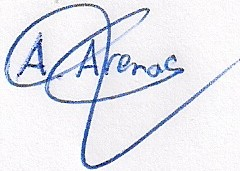 A. Arenas